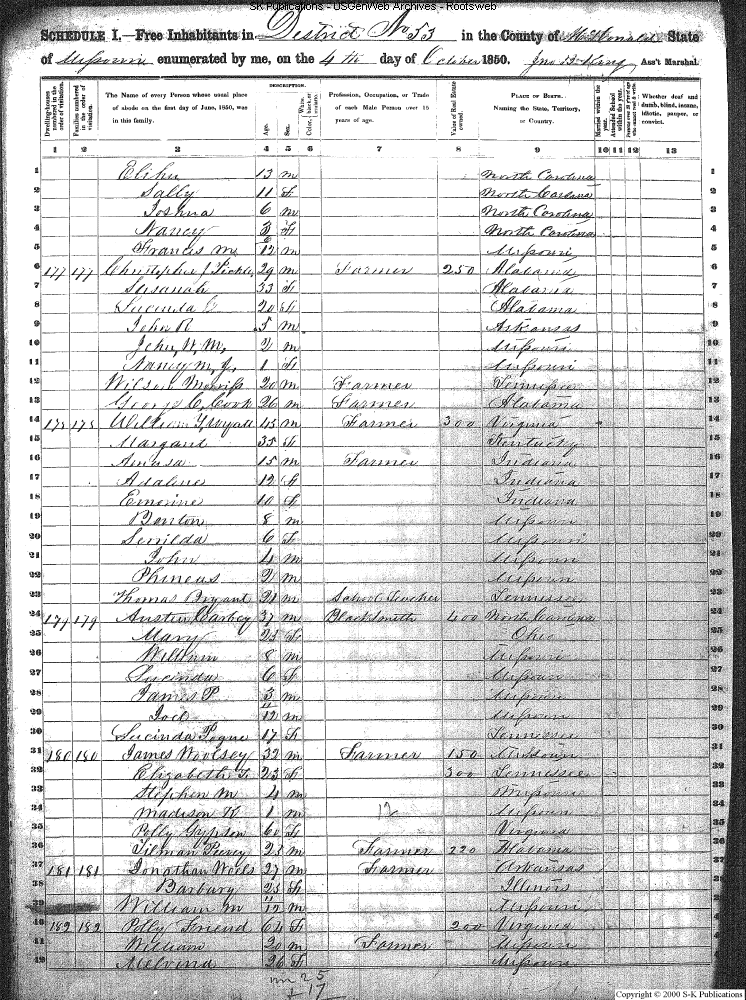 SK Publications - USGenWeb Archives - Rootsweb
SCHEDULE I.—Free Inhabitants in District No 53 in the County of McDonald State
of Missouri enumerated by me, on the 4th day of October 1850. Jno B King Ass't Marshal.
Dwelling-houses numbered in the order of visitation.
Families numbered in the order of visitation.
The Name of every Person whose usual place of abode on the first day of June, 1850, was in this family.
DESCRIPTION.
Age.
Sex.
Color, White, black, or mulatto.
Profession, Occupation, or Trade of each Male Person over 15 years of age.
Value of Real Estate owned.
PLACE OF BIRTH. Naming the State, Territory, or Country.
Married within the year.
Attended School within the year.
Persons over 20 y'rs of age who cannot read & write.
Whether deaf and dumb, blind, insane, idiotic, pauper, or convict.
1 2 3 4 5 6 7 8 9 10 11 12 13
1 Elihu 13 m North Carolina 1
2 Sally 11 f North Carolina 2
3 Joshua 6 m North Carolina 3
4 Nancy 3 f North Carolina 4
5 Francis M 6/12 m Missouri 5
6 177 177 Christopher J 29 m Farmer 250 Alabama 6
7 Susanah 33 f Alabama 7
8 Lucinda 20 f Alabama 8
9 John R 5 m Arkansas 9
10 John, W, M, 2 m Missouri 10
11 Nancy M, J, 1 f Missouri 11
12 Wilson 20 m Farmer Tennessee 12
13 George C, Cook 26 m Farmer Alabama 13
14 178 178 William Wyatt 45 m Farmer 300 Virginia 14
15 Margaret 35 f Kentucky 15
16 Amasa 15 m Farmer Indiana 16
17 Adaline 12 f Indiana 17
18 Emerine 10 f Indiana 18
19 Benton 8 m Missouri 19
20 Serilda 6 f Missouri 20
21 John 4 m Missouri 21
22 Phineus 2 m Missouri 22
23 Thomas Bryant 21 m School Teacher Tennessee 23
24 179 179 Austin 37 m Blacksmith 400 North Carolina 24
25 Mary 25 f Ohio 25
26 William 8 m Missouri 26
27 Lucinda 6 f Missouri 27
28 James P 3 m Missouri 28
29 Joel 11/12 m Missouri 29
30 Lucinda Pogue 17 f Tennessee 30
31 180 180 James Woolsey 32 m Farmer 150 Missouri 31
32 Elizabeth 23 f 300 Tennessee 32
33 Stephen M 4 m Missouri 33
34 Madison K 1 m 12 Missouri 34
35 Polly Gypson 60 f Virginia 35
36 Tilman 21 m Farmer 220 Alabama 36
37 181 181 Jonathan 27 m Farmer Arkansas 37
38 Barbury 25 f Illinois 38
39 William M 11/12 m Missouri 39
182 182 Polly Friend 64 f 200 Virginia 40
41 William 20 m Farmer Missouri 41
42 Melvina 26 f Missouri 42
m 25
f 17
Copyright © 2000 S-K Publications